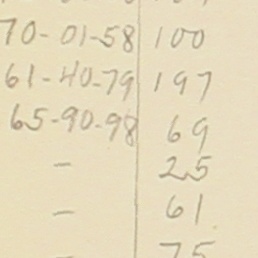 70-01-58 100
61-40-79 197
65-90-98 69
- 25
- 61
- 75